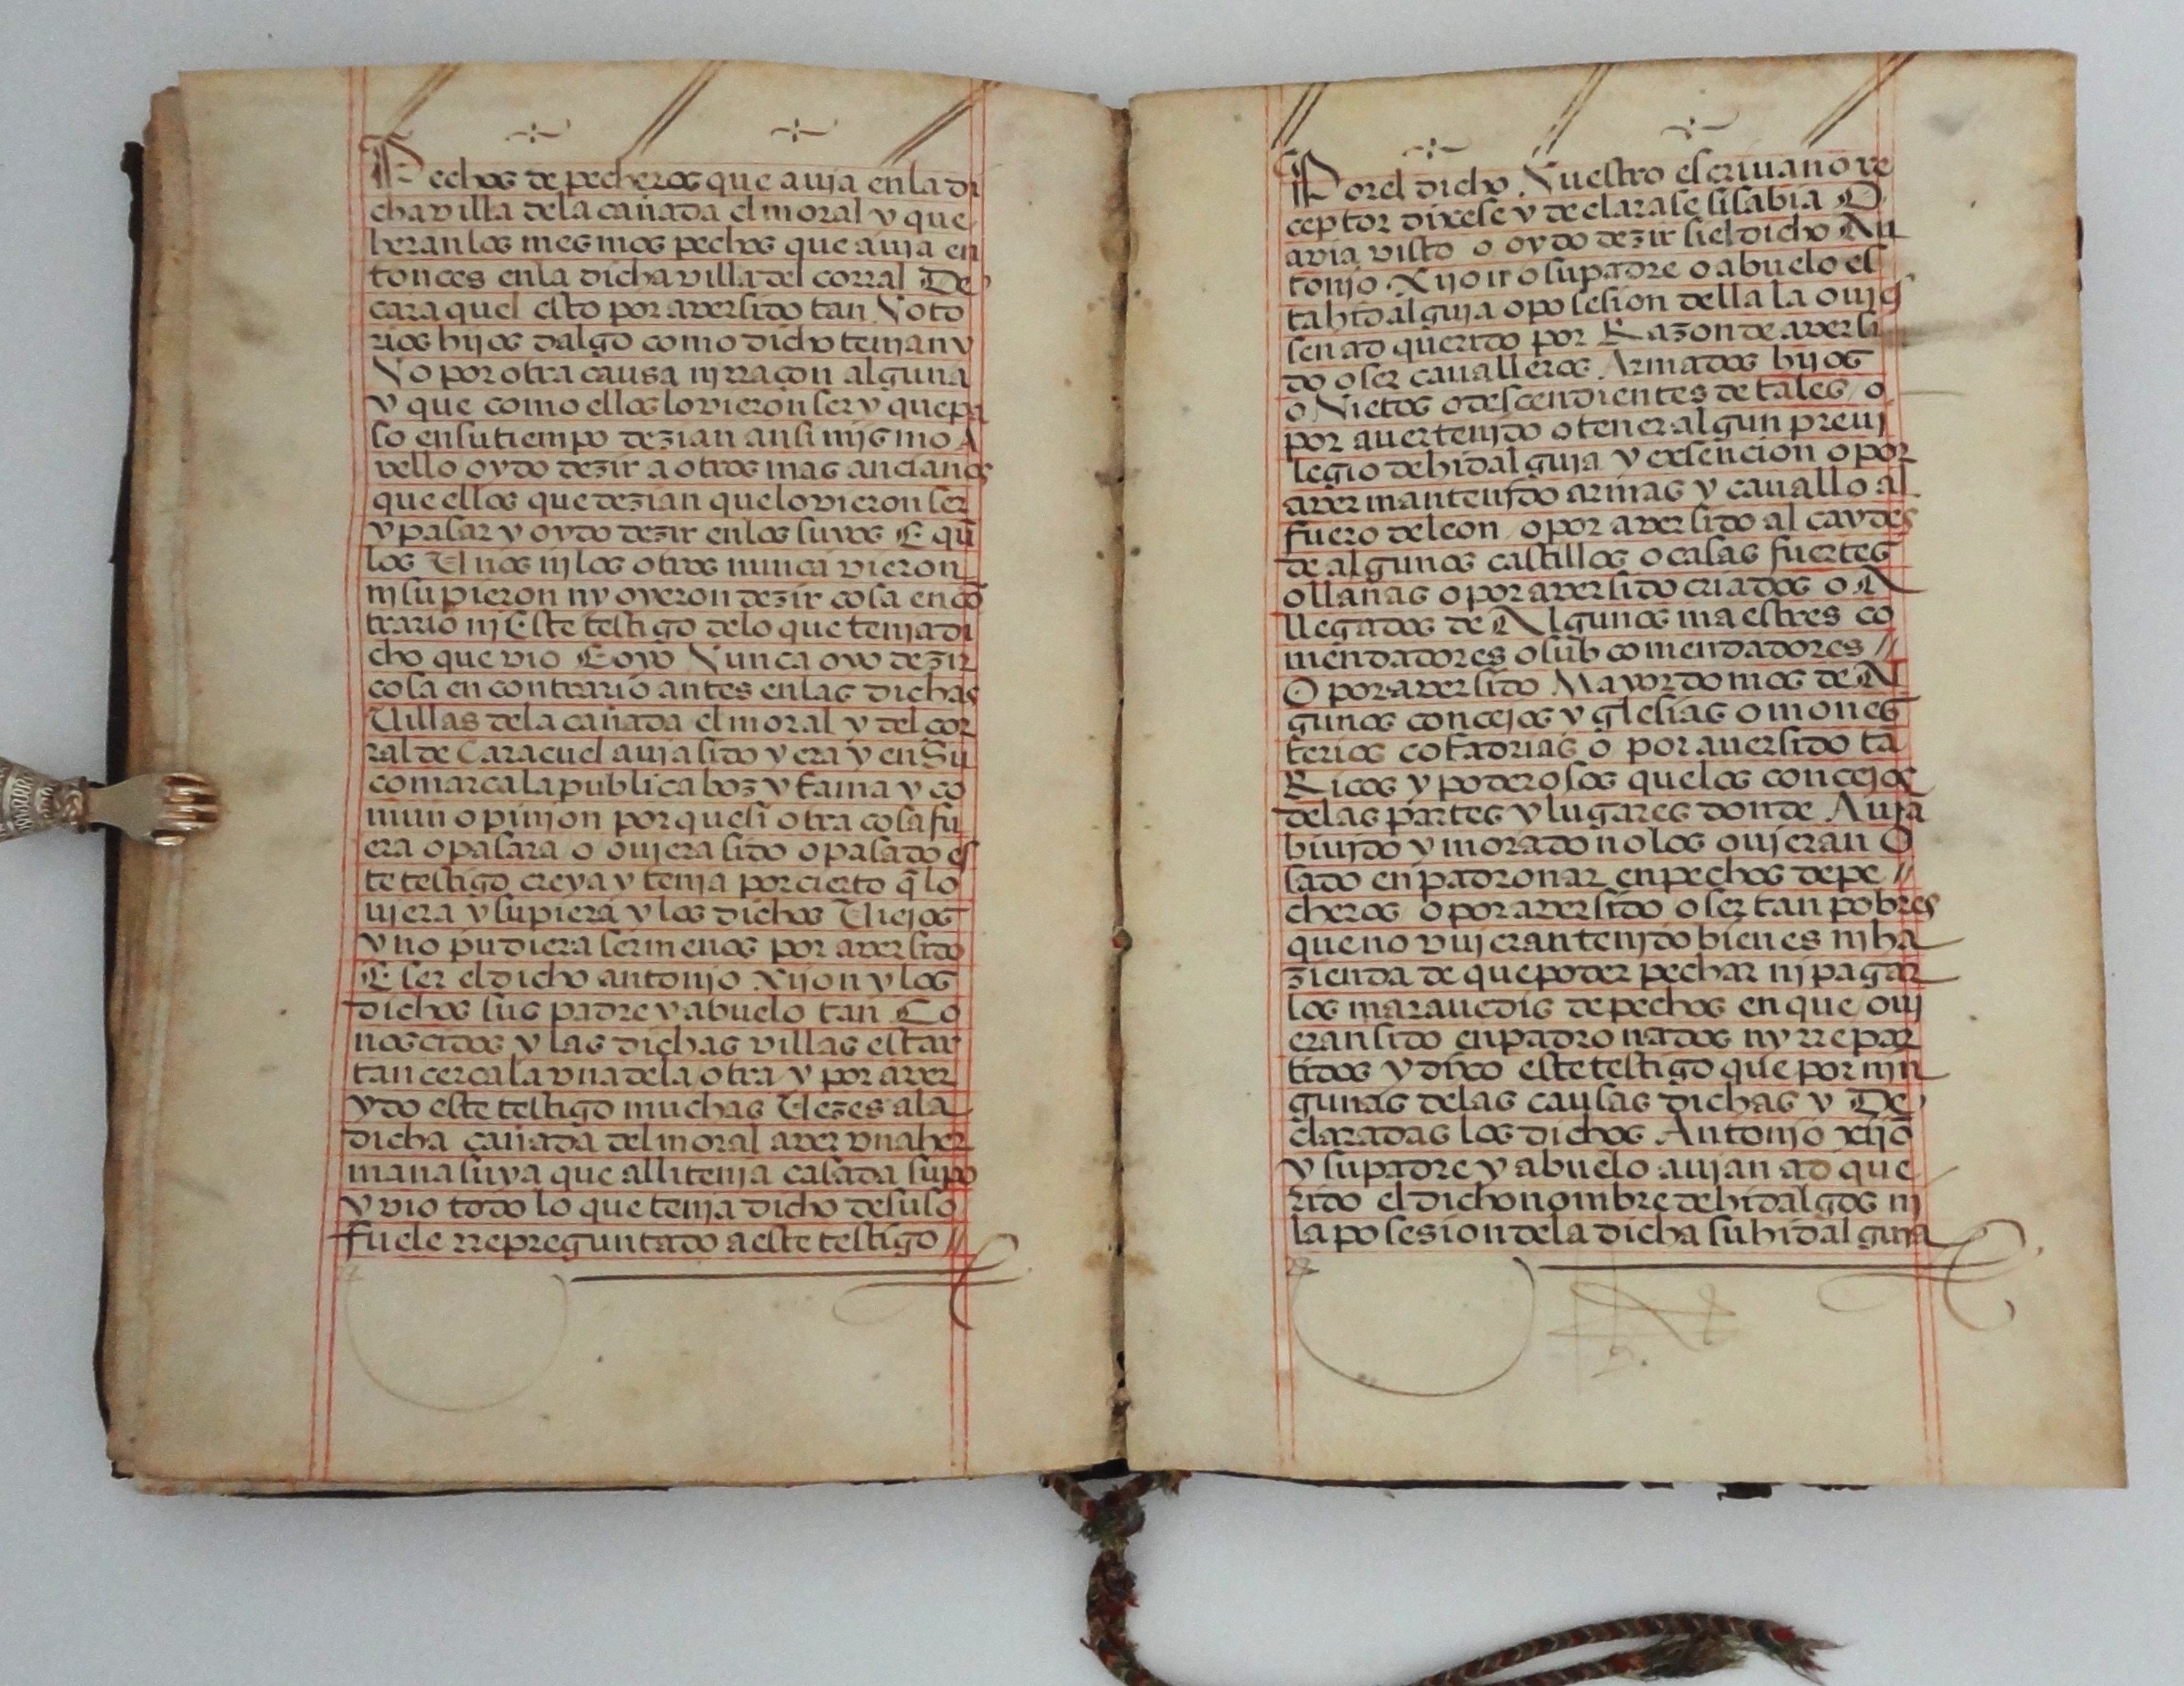 Pechos de pecheros que auja en la di
cha villa dela cañada el moral y que
heran los mesmos pechos que auja en
tonces enla dicha villa del corral De
caraquel esto por aversido tan Noto
rios hijos dalgo como dicho tenjan y
No por otra causa nj rraçon alguna
y que como ellos lo vieron ser y que pa
so en su tiempo dezian ansi mjsmo A
vello oydo dezir a otros mas ancianos
que ellos que dezian que lo vieron ser
y pasar y oydo dezir en los suyos E qu
los Unos nj los otros nunca vieron
nj supieron ny oyeron dezir cosa en cō
trario nj Este testigo delo que tenja di
cho que vio E oyo Nunca oyo dezir
cosa en contrario antes en las dichas
Villas dela cañada el moral y del cor
ral de Caracuel auja sido y era y en Su
comarca la publica boz y fama y co
mun opinjon por que si otra cosa fu
era o pasara o oujera sido o pasado es
te testigo creya y tenja por cierto q̄ lo
ujera y supiera y los dichos Viejos
y no pudiera ser menos por aver sido
E ser el dicho antonjo xijon y los
dichos sus padre y abuelo tan Co
noscidos y las dichas villas estar
tan cerca la vna dela otra y por aver
ydo este testigo muchas Vezes ala
dicha cañada del moral aver vna her
mana suya que alli tenja casada supo
y vio todo lo que tenja dicho desuso
fuele rrepreguntado a este testigo //
Por el dicho Nuestro escriuano re
ceptor dixese y declarase si sabia O
avia visto o oydo dezir si el dicho An
tonjo Xijon o su padre o abuelo es
ta hidalguja o posesion della la oujes
sen ad querido por Razon de aver si
do o ser caualleros Armados hijos
o Nietos o descendientes de tales / o
por auer tenjdo o tener algun preuj
legio de hidalguja y exsencion o por
aver mantenjdo armas y cauallo al
fuero de leon / o por aver sido alcaydes
de algunos castillos o casas fuertes
o llanas o por aver sido criados o A
llegados de Algunos maestres co
mendadores o sub comendadores //
O por aver sido Mayordomos de Al
gunos concejos yglesias o mones
terios cofadrias o por auer sido tā
Ricos y poderosos que los concejos
delas partes y lugares donde Auja
biujdo y morado no los oujeran O
sado en padronar en pechos de pe //
cheros o por aver sido o ser tan pobres
que no vujeran tenjdo bienes nj ha
zienda de que poder pechar nj pagar
los marauedis de pechos en que ouj
eran sido enpadronados ny rrepar
tidos y dixo este testigo que por nin
gunas delas causas dichas y De
claradas los dichos Antonjo xijō
y su padre y abuelo aujan ad que
rido el dicho nombre de hidalgos nj
la posesion dela dicha su hidalguja